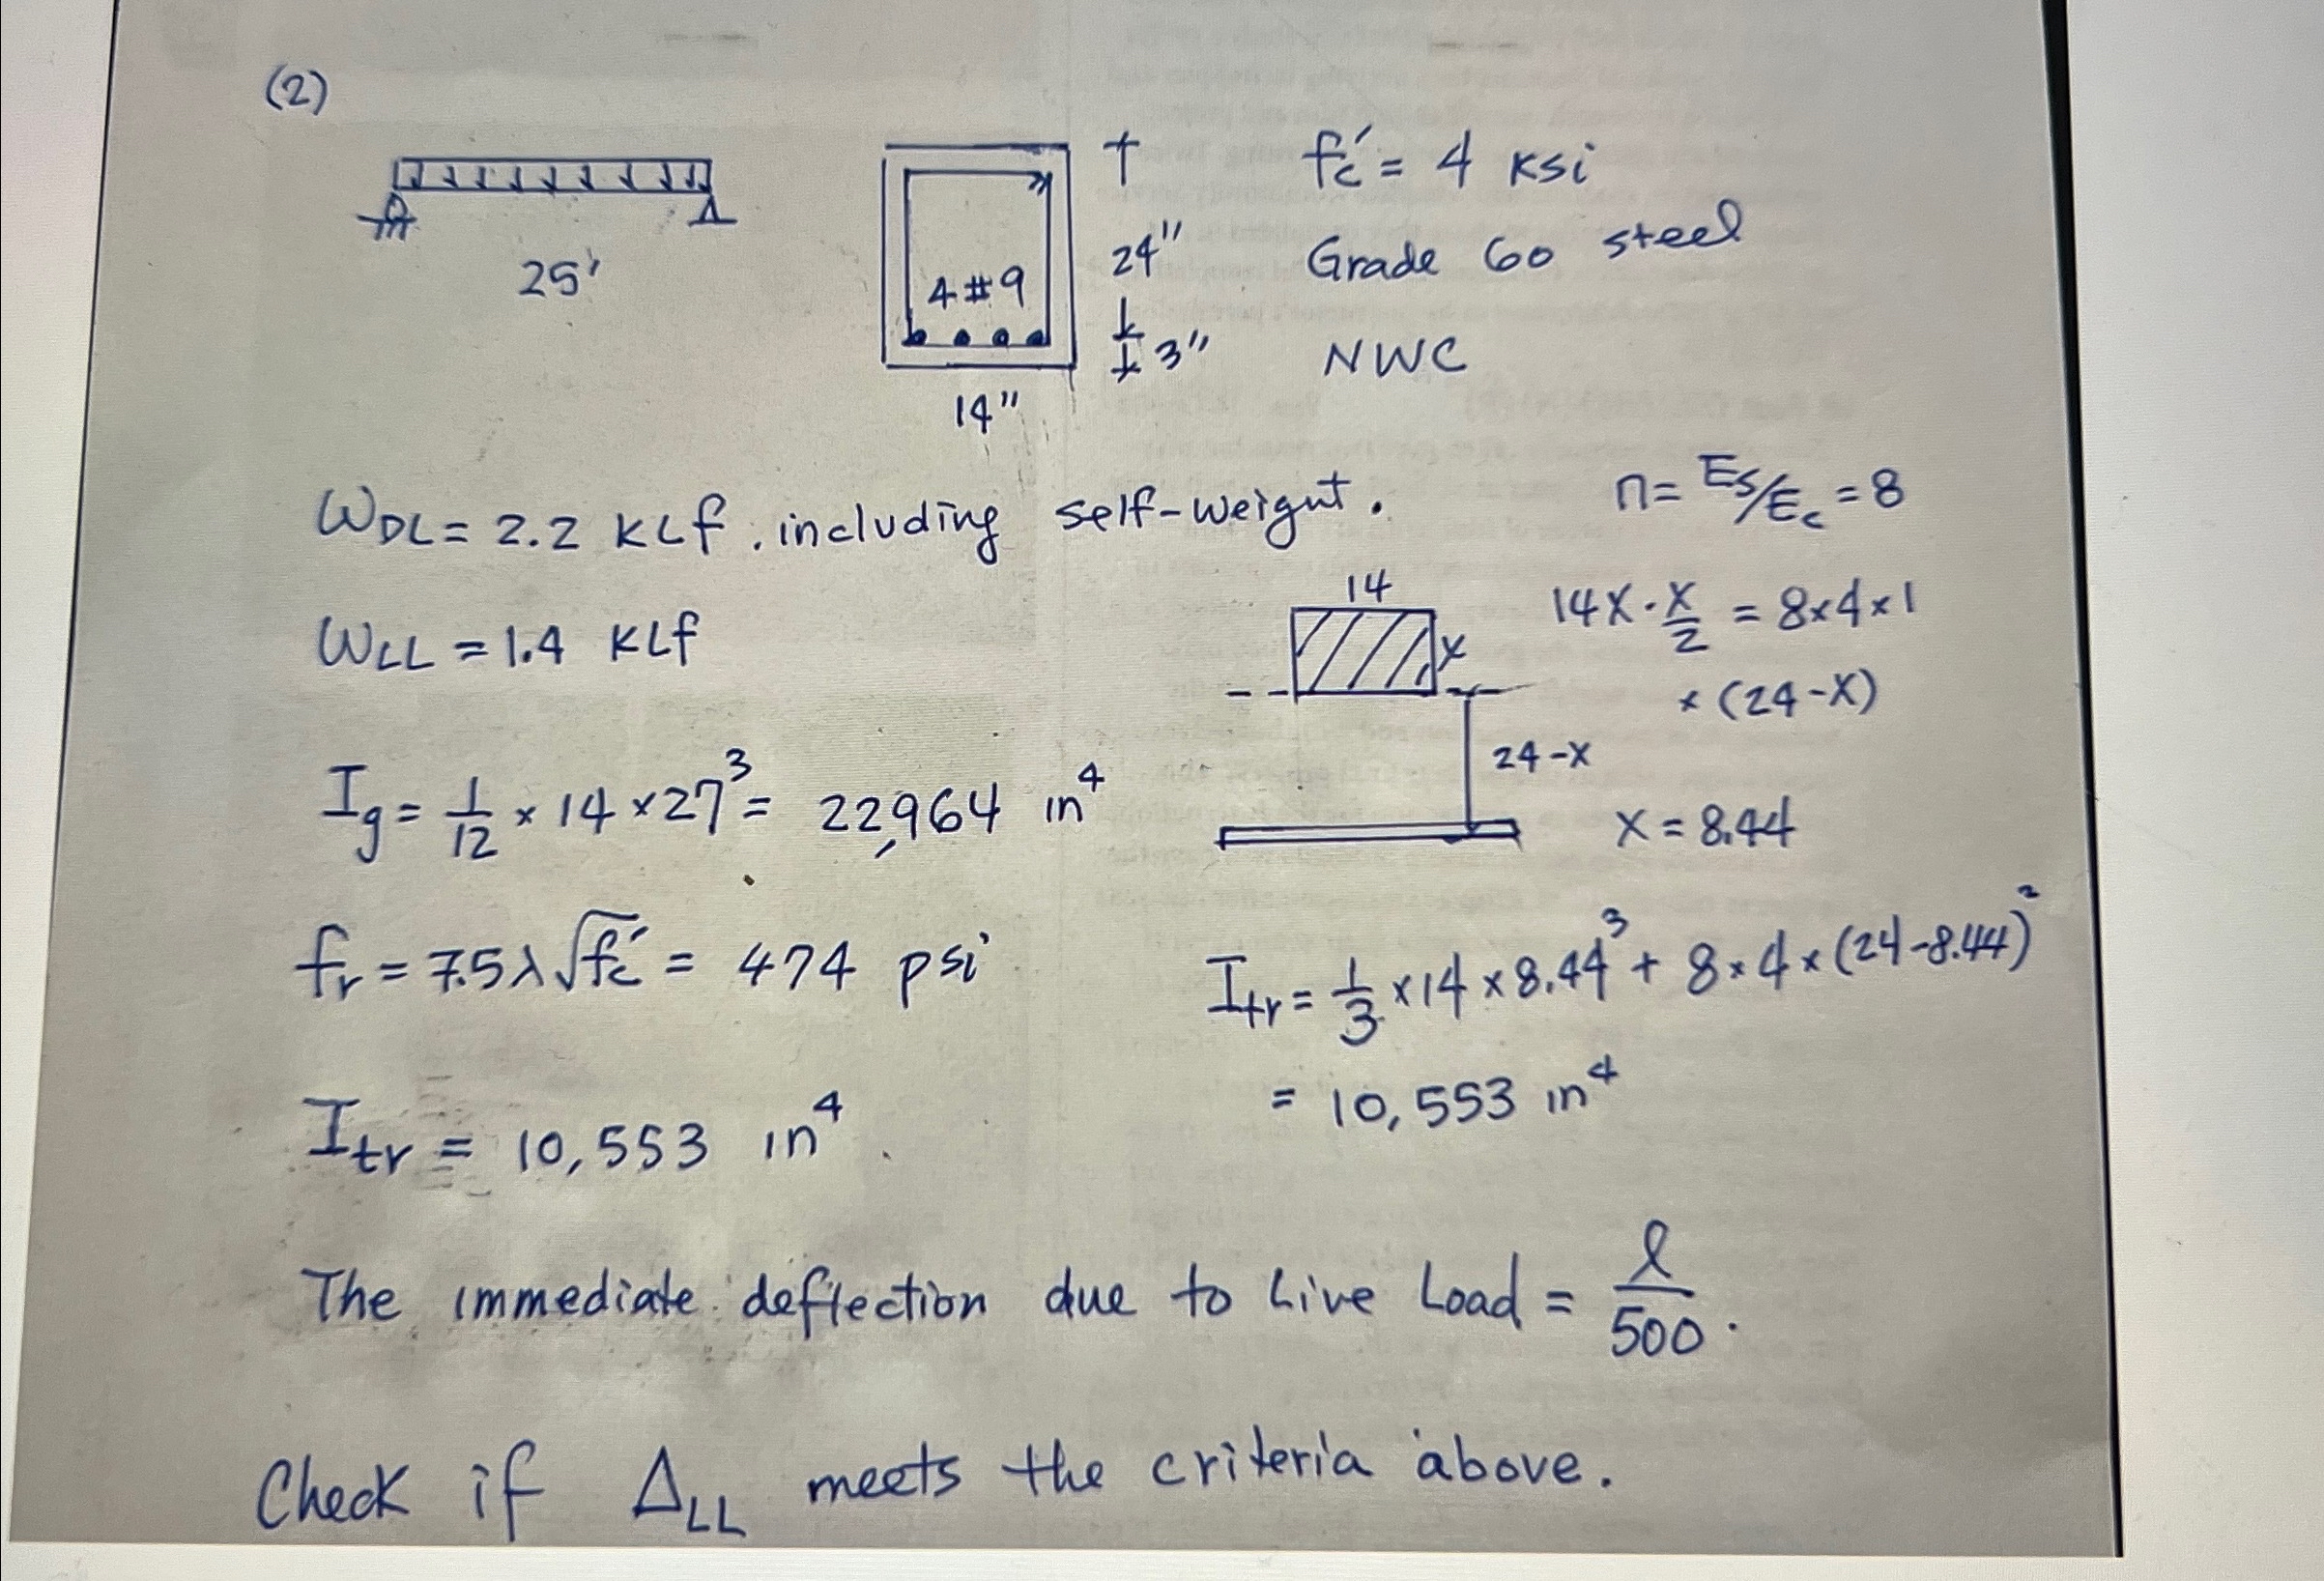 (2)
25'
4#9
24"
3"
14"
fc' = 4 ksi
Grade 60 steel
NWC
WDL = 2.2 KLf. including self-weignt.
WLL = 1.4 KLf
n = Es/Ec = 8
14
x
24-x
14x · x/2 = 8×4×1
× (24-x)
x = 8.44
Ig = 1/12 × 14 × 27³ = 22,964 in⁴
fr = 7.5λ√fc' = 474 psi
Itr = 10,553 in⁴.
Itr = 1/3 × 14 × 8.44³ + 8×4×(24-8.44)²
= 10,553 in⁴
The immediate deflection due to Live Load = l/500.
Check if ΔLL meets the criteria above.